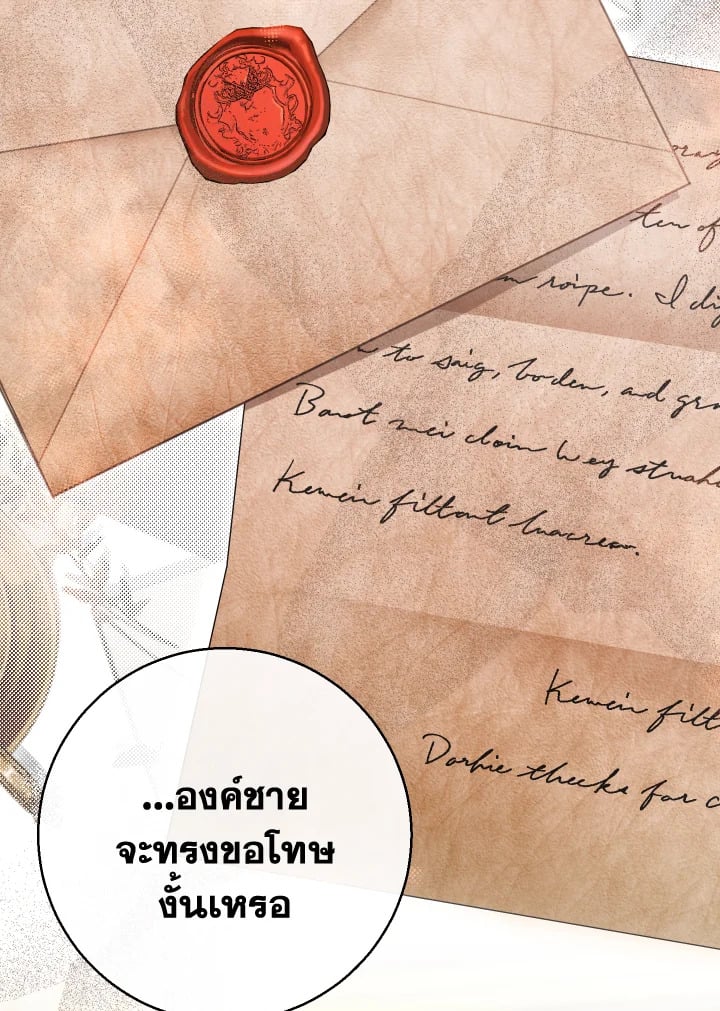 ten of
roipe. I di
to saig, boden, and gra
Barot mei cloin wey struah
Kewein filtont luacreo.
Kewein filt
Dorhie thecks for c
...องค์ชาย
จะทรงขอโทษ
งั้นเหรอ